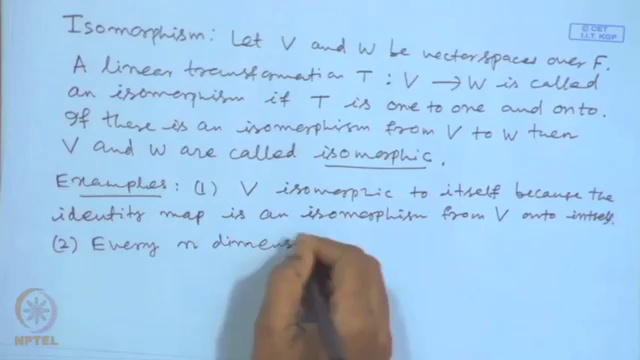 © CET
I.I.T. KGP
Isomorphism: Let V and W be vector spaces over F.
A linear transformation T : V → W is called
an isomorphism if T is one to one and onto.
If there is an isomorphism from V to W then
V and W are called isomorphic.
Examples: (1) V isomorphic to itself because the
identity map is an isomorphism from V onto intself.
(2) Every n dimens
NPTEL